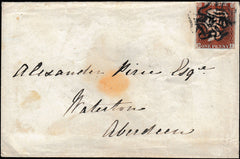 Alexander Pirie Esqr.
Waterton
Aberdeen
ONE PENNY